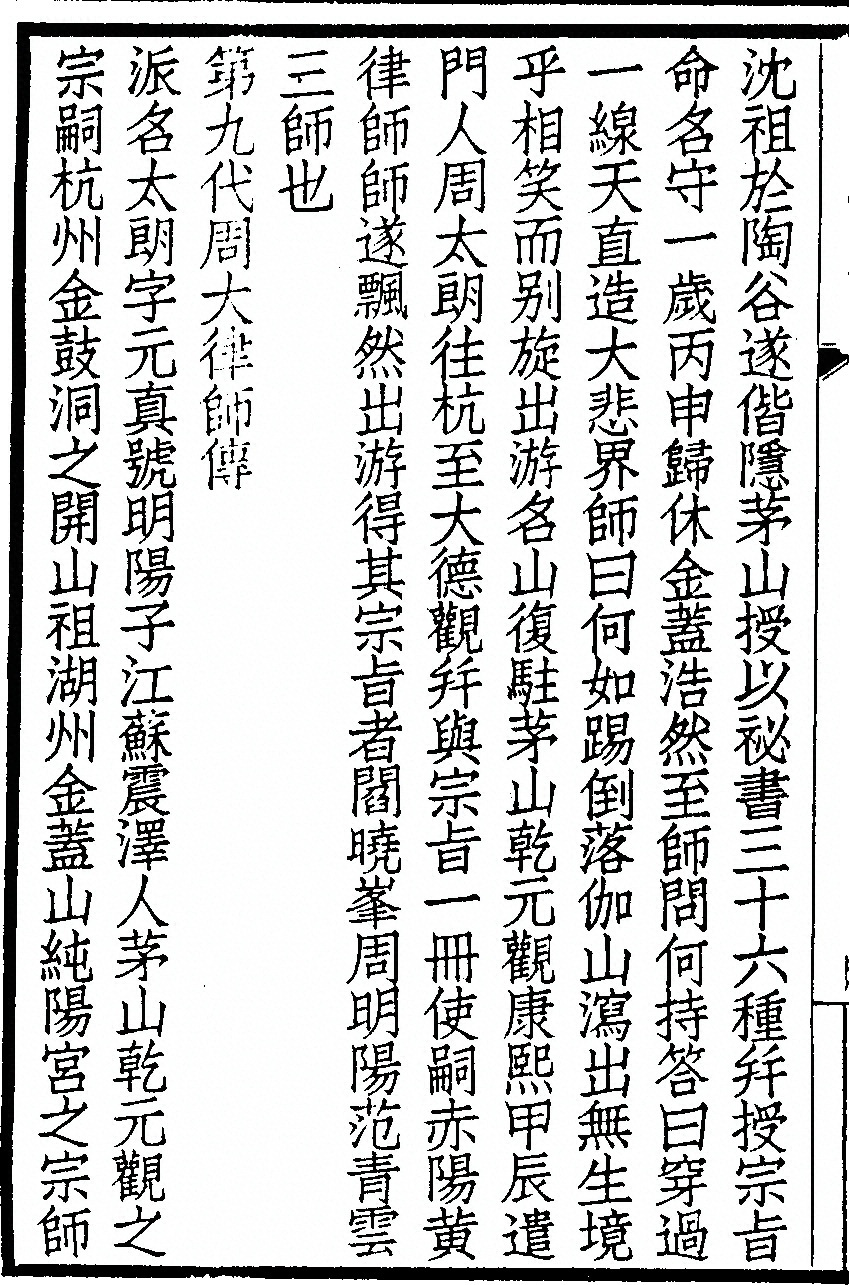 沈祖於陶谷遂偕隱茅山授以祕書三十六種幷授宗旨
命名守一歲丙申歸休金蓋浩然至師問何持答曰穿過
一線天直造大悲界師曰何如踢倒落伽山瀉出無生境
乎相笑而别旋出游名山復駐茅山乾元觀康熙甲辰遣
門人周太朗往杭至大德觀幷與宗旨一冊使嗣赤陽黄
律師師遂飄然出游得其宗旨者閻曉峯周明陽范青雲
三師也
第九代周大律師傳
派名太朗字元真號明陽子江蘇震澤人茅山乾元觀之
宗嗣杭州金鼓洞之開山祖湖州金蓋山純陽宮之宗師